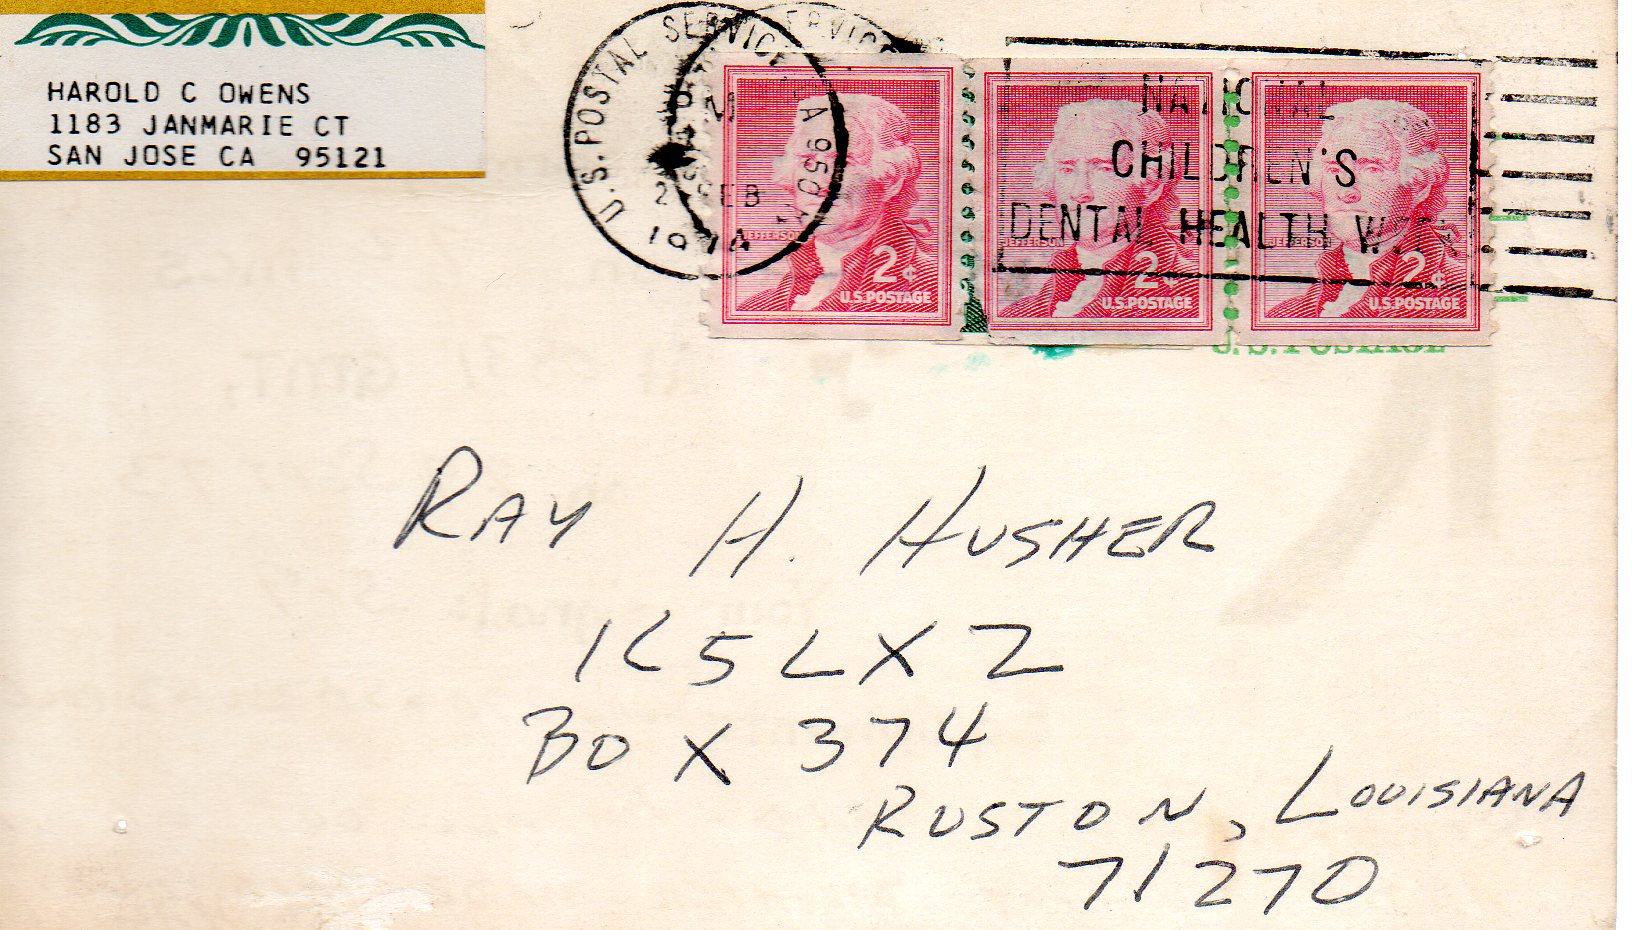 HAROLD C OWENS
1183 JANMARIE CT
SAN JOSE CA 95121
U.S. POSTAL SERVICE
PM
FEB
1974
NATIONAL
CHILDREN'S
DENTAL HEALTH WEEK
JEFFERSON
2¢
U.S. POSTAGE
JEFFERSON
2¢
U.S. POSTAGE
JEFFERSON
2¢
U.S. POSTAGE
U.S. POSTAGE
RAY H. HUSHER
K5LXZ
BOX 374
RUSTON, LOUISIANA
71270